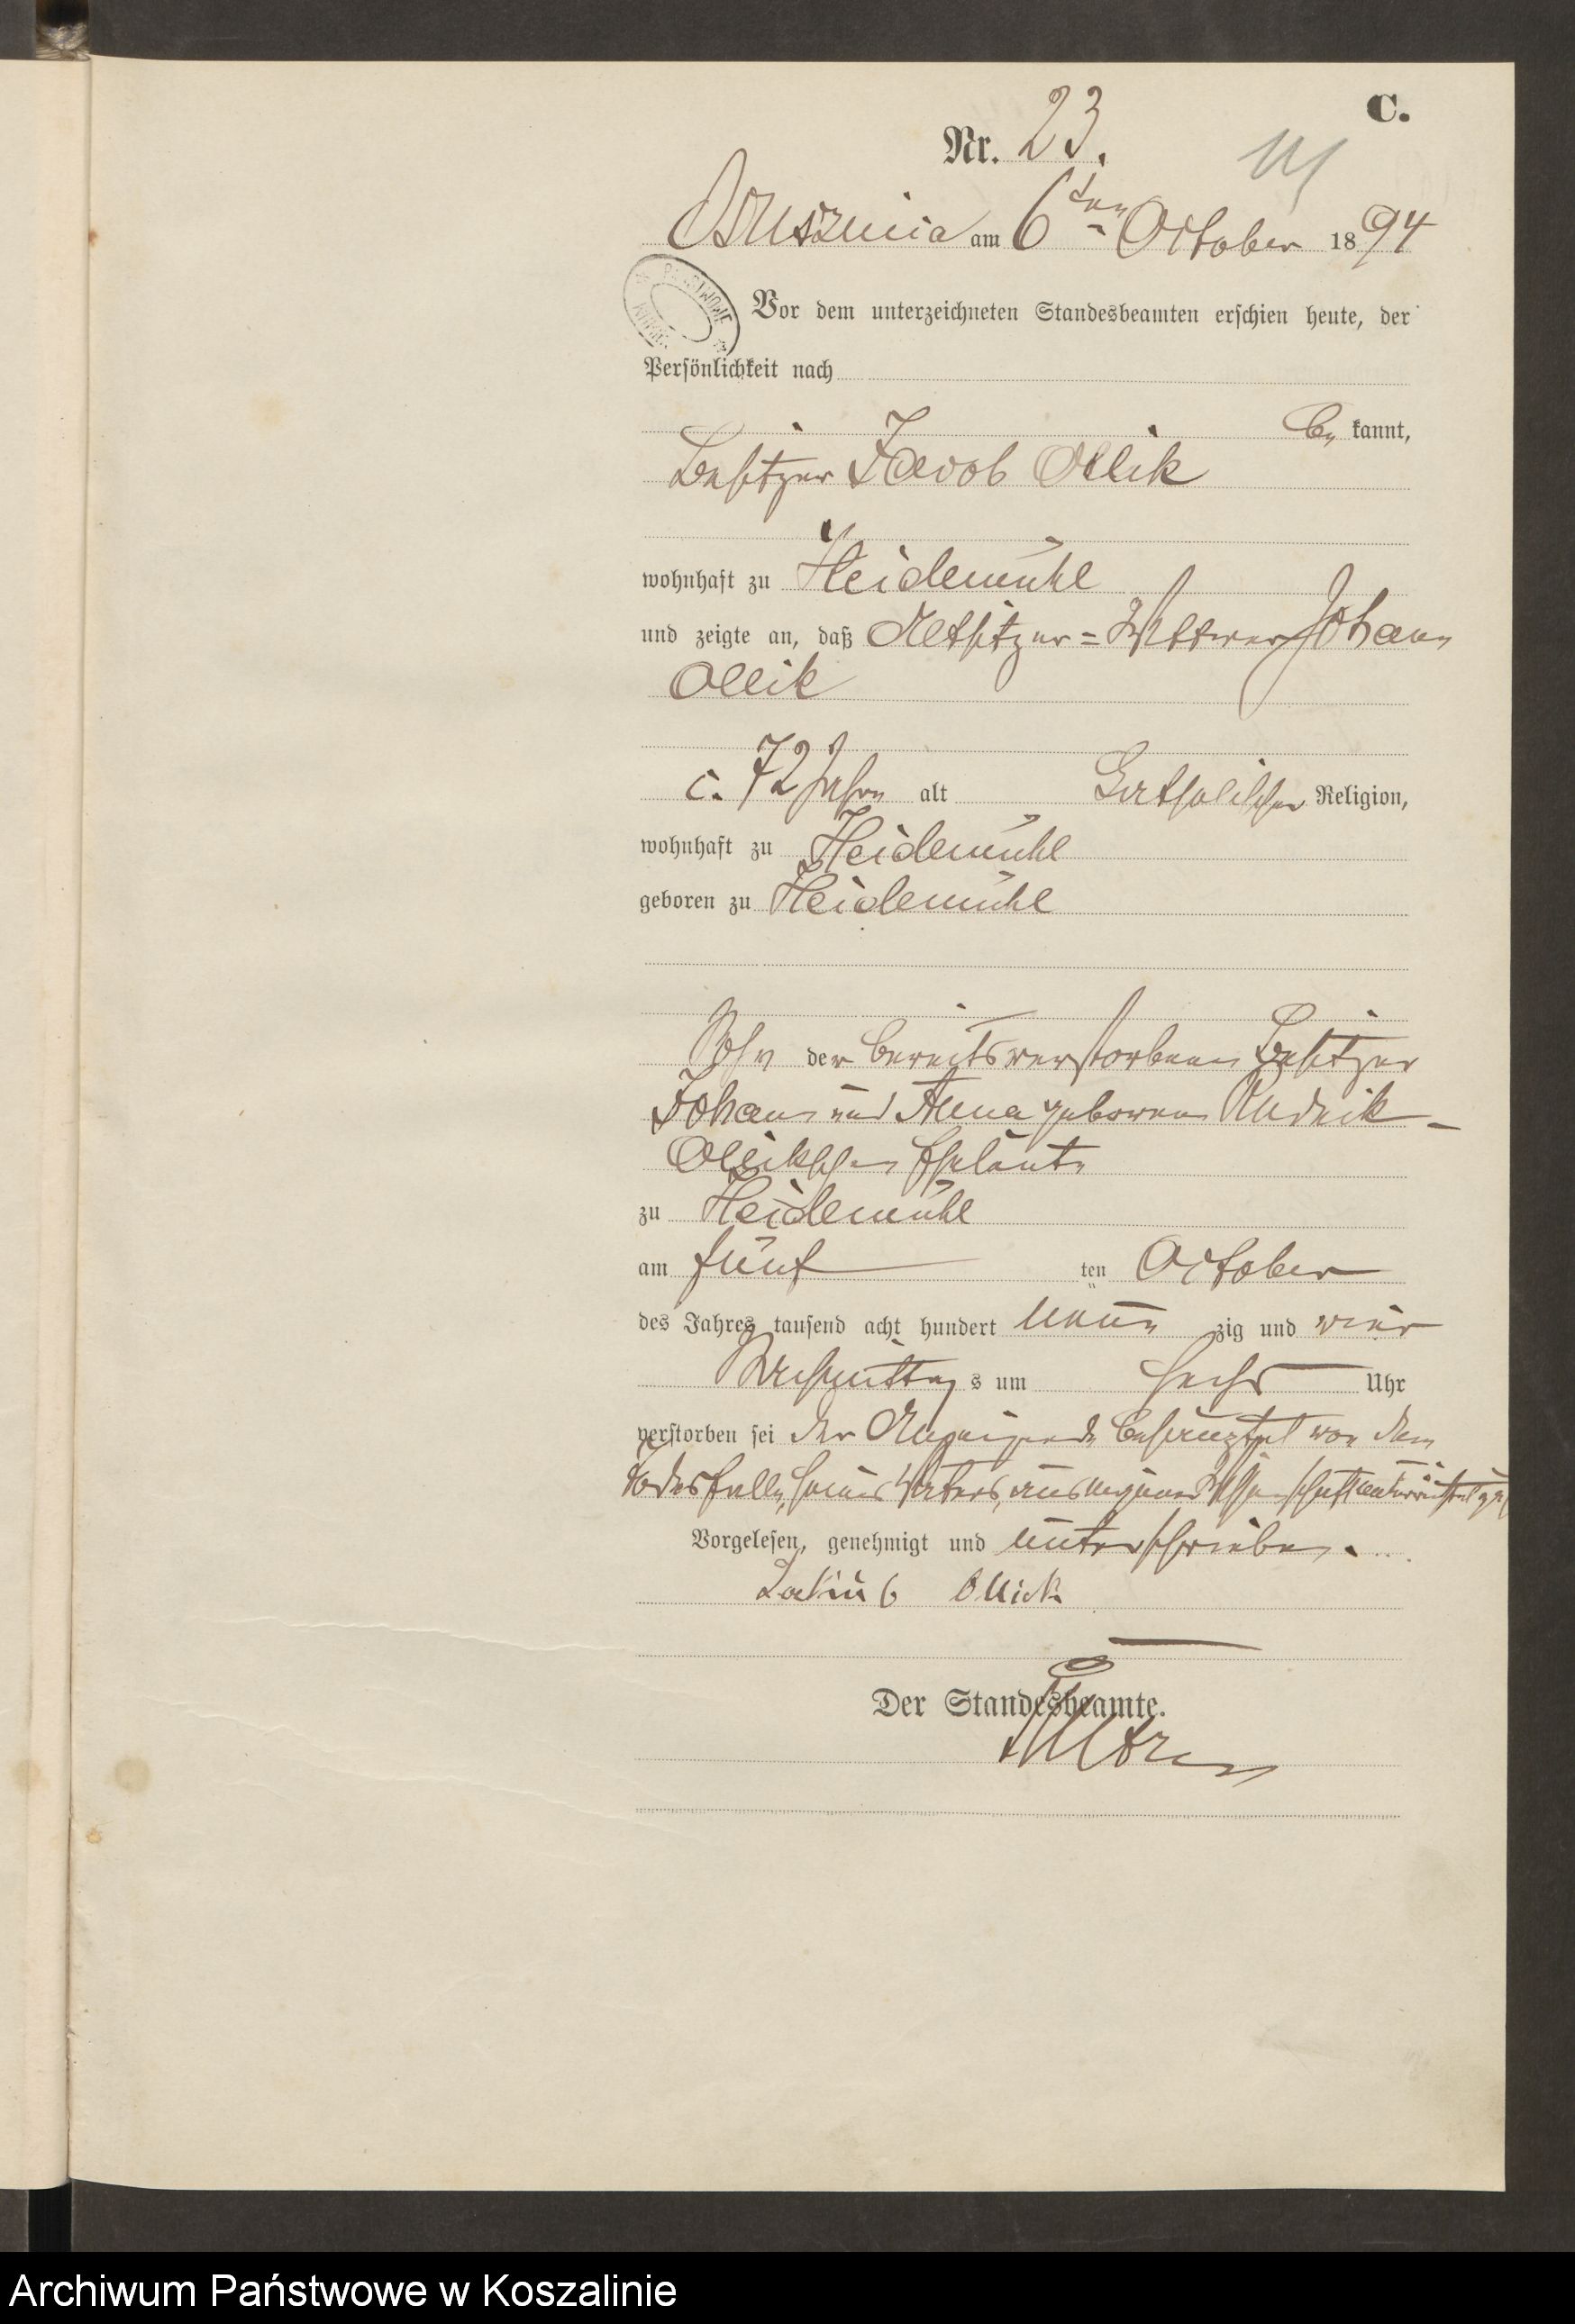 C.
Nr. 23.
am 6ten October 1894
Vor dem unterzeichneten Standesbeamten erschien heute, der
Persönlichkeit nach
be kannt,
Besitzer Jacob Ollik
wohnhaft zu Heidemühl
und zeigte an, daß Altsitzer = Wittwer Johann
Ollik
c. 72 Jahre alt katholischer Religion,
wohnhaft zu Heidemühl
geboren zu Heidemühl
Sohn der bereits verstorbenen Besitzer
Johann und Anna geborene Rudnik -
Ollikschen Eheleute
zu Heidemühl
am fünf ten October
des Jahres tausend acht hundert neun zig und vier
Nachmittag s um sechs Uhr
verstorben sei der Anzeigende von dem
Todesfalle seines Vaters, aus eigener Wissenschaft unterrichtet
Vorgelesen, genehmigt und unterschrieben.
Jakub Ollick
Der Standesbeamte.
Archiwum Państwowe w Koszalinie